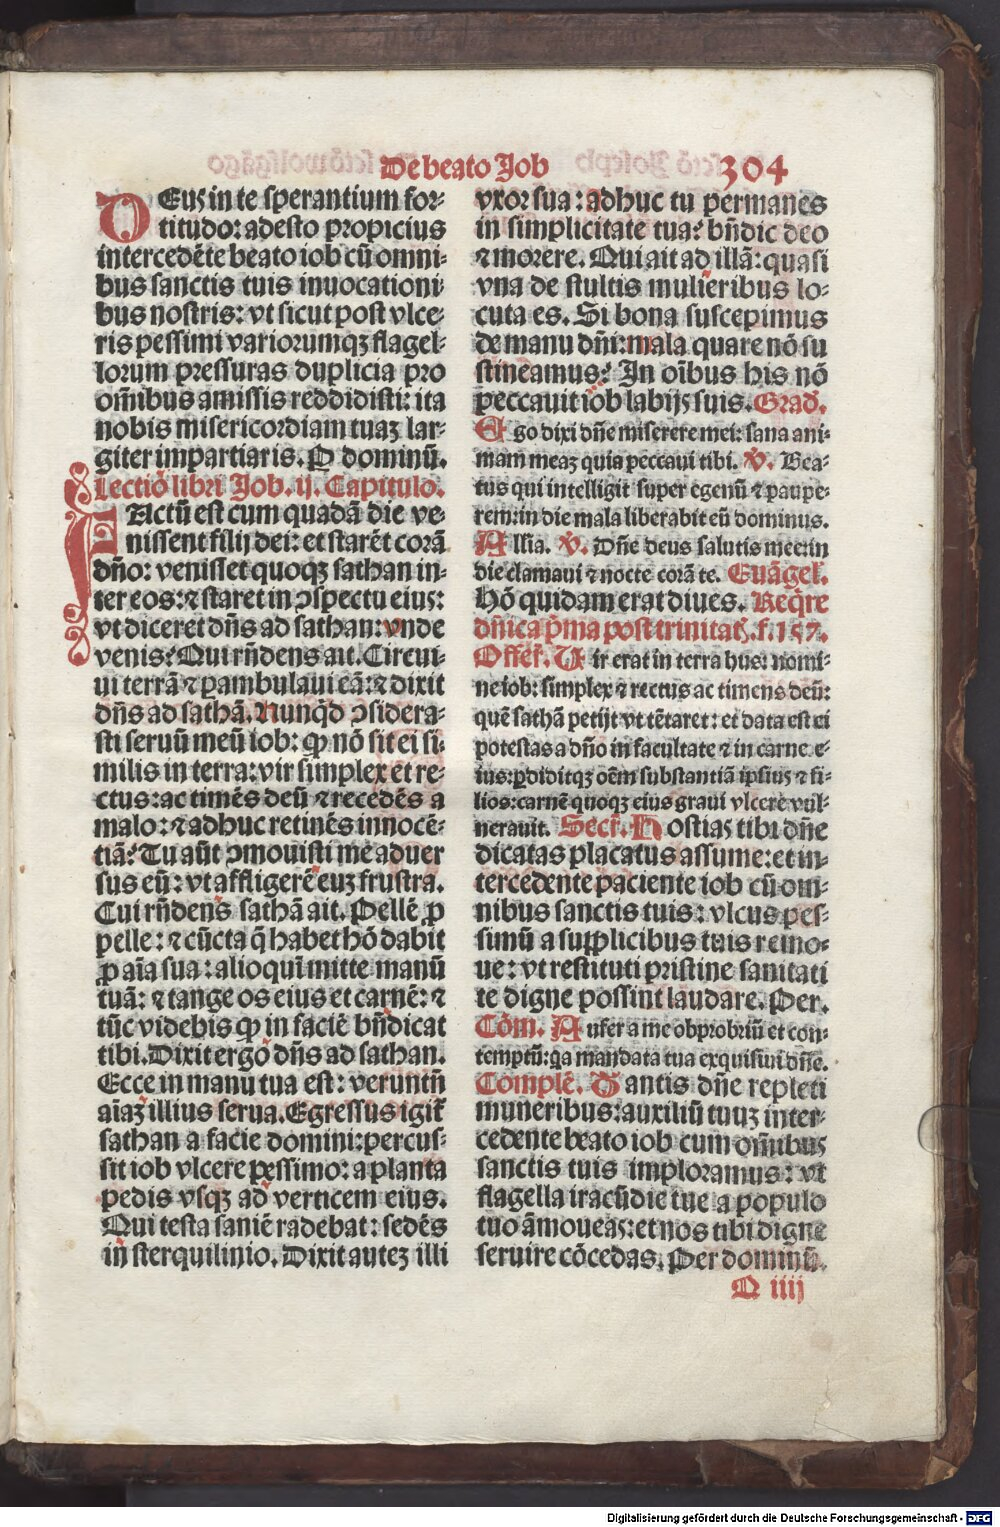 De beato Job
304
DEus in te sperantium for⸗
titudo: adesto propicius
intercedēte beato iob cū omni⸗
bus sanctis tuis inuocationi
bus nostris: vt sicut post vlce⸗
ris pessimi variorumqꝫ flagel⸗
lorum pressuras duplicia pro
om̄ibus amissis reddidisti: ita
nobis misericordiam tuaꝫ lar⸗
giter impartiaris. P dominū.
Lectiō libri Job. ij. Capitulo.
FActū est cum quadā die ve⸗
nissent filij dei: et starēt corā
dn̄o: venisset quoqꝫ sathan in⸗
ter eos: ⁊ staret in ↄspectu eius:
vt diceret dn̄s ad sathan: vnde
venis? Qui rn̄dens ait. Circui⸗
ui terrā ⁊ ꝑambulaui eā: ⁊ dixit
dn̄s ad sathā. Nunqd̄ ↄsidera⸗
sti seruū meū iob: ꝙ nō sit ei si⸗
milis in terra: vir simplex et re⸗
ctus: ac timēs deū ⁊ recedēs a
malo: ⁊ adhuc retinēs innocē⸗
tiā? Tu aūt ↄmouisti me aduer
sus eū: vt affligerē euꝫ frustra.
Cui rn̄dens sathā ait. Pellē ꝓ
pelle: ⁊ cūcta q̄ habet hō dabit
ꝓ aīa sua: alioquī mitte manū
tuā: ⁊ tange os eius et carnē: ⁊
tūc videbis ꝙ in faciē bn̄dicat
tibi. Dixit ergo dn̄s ad sathan.
Ecce in manu tua est: veruntn̄
aīaꝫ illius serua. Egressus igit̄
sathan a facie domini: percus⸗
sit iob vlcere pessimo: a planta
pedis vsqꝫ ad verticem eius.
Qui testa saniē radebat: sedēs
in sterquilinio. Dixit auteꝫ illi
vxor sua: adhuc tu permanes
in simplicitate tua? bn̄dic deo
⁊ morere. Qui ait ad illā: quasi
vna de stultis mulieribus lo⸗
cuta es. Si bona suscepimus
de manu dn̄i: mala quare nō su
stineamus? In oībus his nō
peccauit iob labijs suis. Grad̄.
Ego dixi dn̄e miserere mei: sana ani⸗
mam meaꝫ quia peccaui tibi. V̄. Bea⸗
tus qui intelligit super egenū ⁊ paupe⸗
rem: in die mala liberabit eū dominus.
All̄ia. V̄. Dn̄e deus salutis mee: in
die clamaui ⁊ nocte corā te. Euāgel̄.
Hō quidam erat diues. Req̄re
dn̄ica p̄ma post trinitaꝭ. f. 157.
Offer̄. Vir erat in terra hus: nomi⸗
ne iob: simplex ⁊ rectus ac timens deū:
quē sathā petijt vt tētaret: et data est ei
potestas a dn̄o in facultate ⁊ in carne e⸗
ius: ꝑdiditqꝫ oēm substantiā ipsius ⁊ fi⸗
lios: carnē quoqꝫ eius graui vlcere vul⸗
nerauit. Secr̄. Hostias tibi dn̄e
dicatas placatus assume: et in⸗
tercedente paciente iob cū om⸗
nibus sanctis tuis: vlcus pes⸗
simū a supplicibus tuis remo⸗
ue: vt restituti pristine sanitati
te digne possint laudare. Per.
Cōm. Aufer a me obprobriū et con⸗
temptū: qa mandata tua exquisiui dn̄e.
Complē. Tantis dn̄e repleti
muneribus: auxiliū tuuꝫ inter⸗
cedente beato iob cum om̄ibus
sanctis tuis imploramus: vt
flagella iracūdie tue a populo
tuo āmoueas: et nos tibi digne
seruire cōcedas. Per dominū.
Q iiij
Digitalisierung gefördert durch die Deutsche Forschungsgemeinschaft - DFG